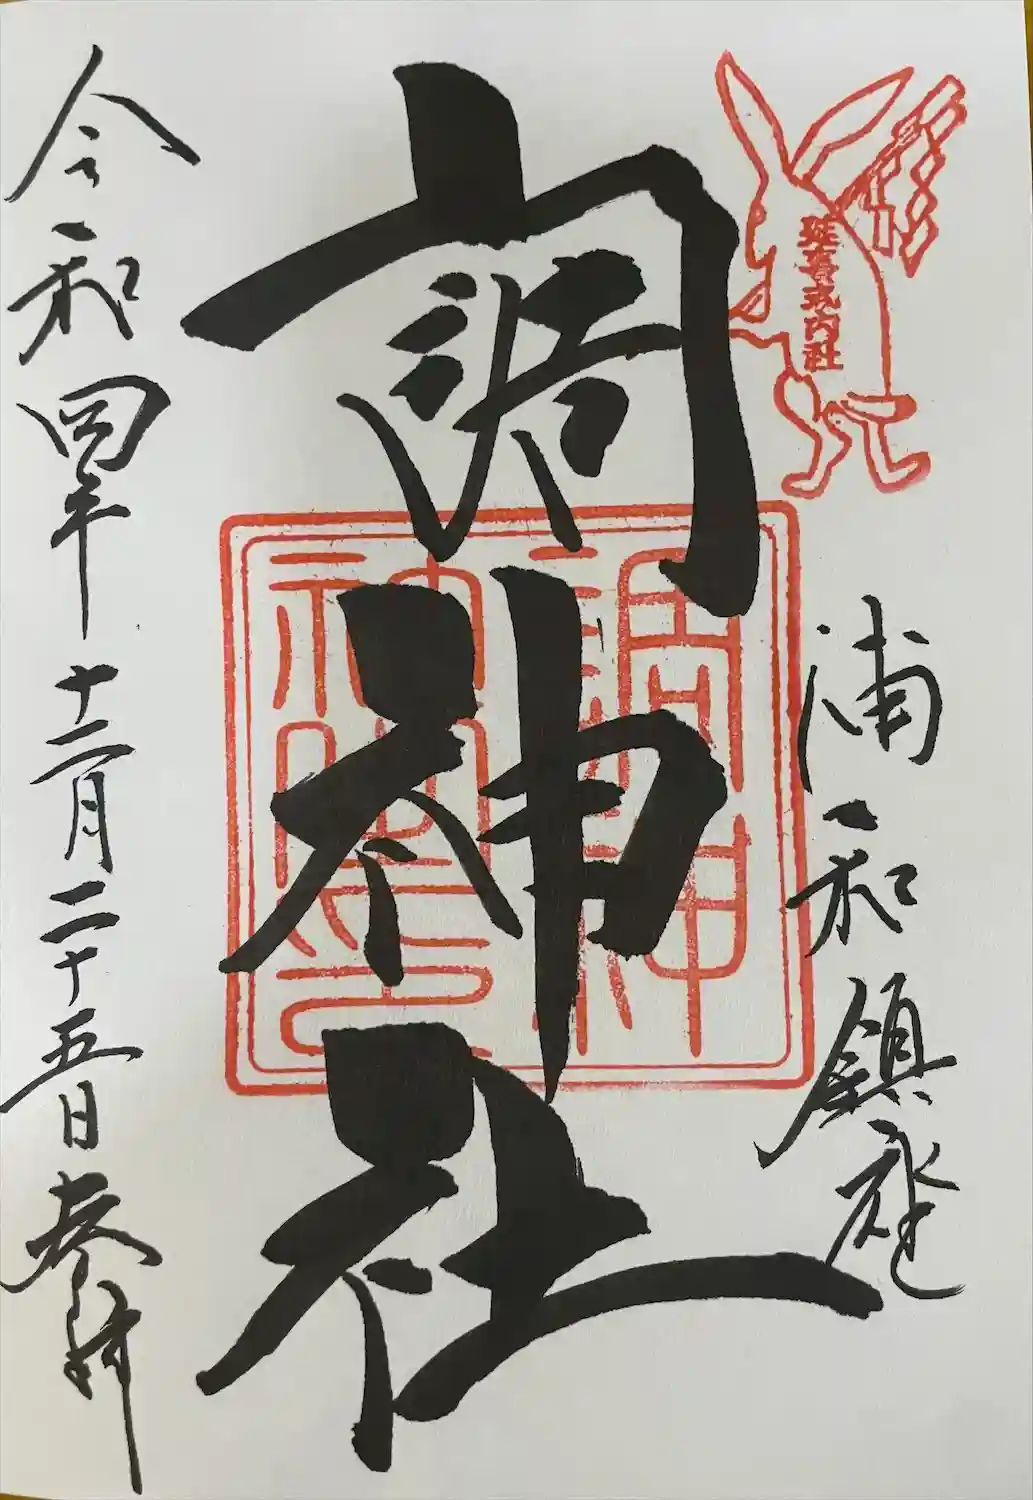 延喜式内社
浦和鎮座
調神社
調神
社之印
令和四年十二月二十五日参拝